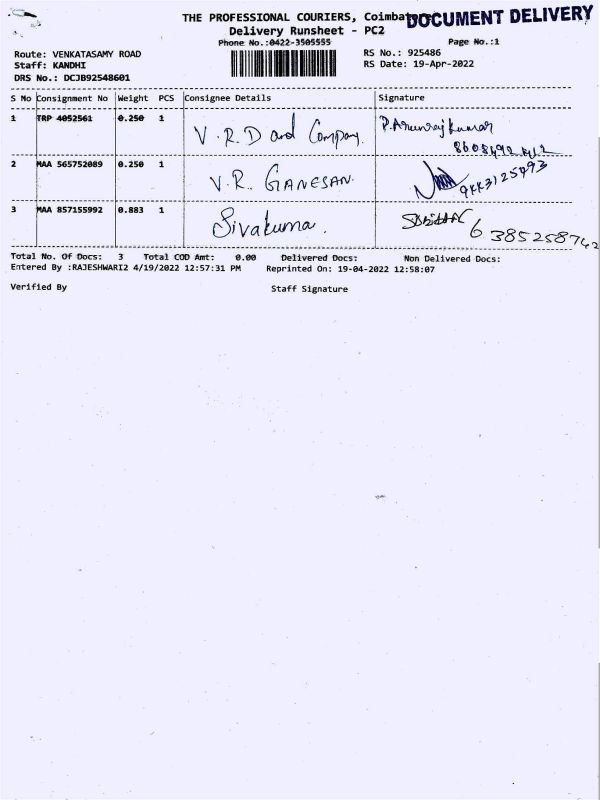 THE PROFESSIONAL COURIERS, Coimbatore
DOCUMENT DELIVERY
Delivery Runsheet - PC2
Phone No.:0422-3505555
Page No.:1
Route: VENKATASAMY ROAD
RS No.: 925486
Staff: KANDHI
RS Date: 19-Apr-2022
DRS No.: DCJB92548601
S No Consignment No Weight PCS Consignee Details Signature
1 TRP 4052561 0.250 1 V.R.D and Company. P.Arunrajkumar
2 MAA 565752089 0.250 1 V.R. GANESAN.
3 MAA 857155992 0.883 1 Sivakuma. 6385258742
Total No. Of Docs: 3 Total COD Amt: 0.00 Delivered Docs: Non Delivered Docs:
Entered By :RAJESHWARI2 4/19/2022 12:57:31 PM Reprinted On: 19-04-2022 12:58:07
Verified By Staff Signature